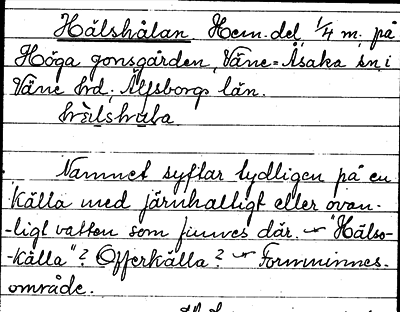 Hälshålan Hem. del 1/4 m. på
Höga gonsgården, Väne-Åsaka sn, i
Väne hd, Älfsborgs län.
Namnet syftar tydligen på en
källa med järnhalligt eller ovan-
-ligt vatten som finnes där. "Hälso-
-källa"? Offerkälla? Fornminnes-
område.